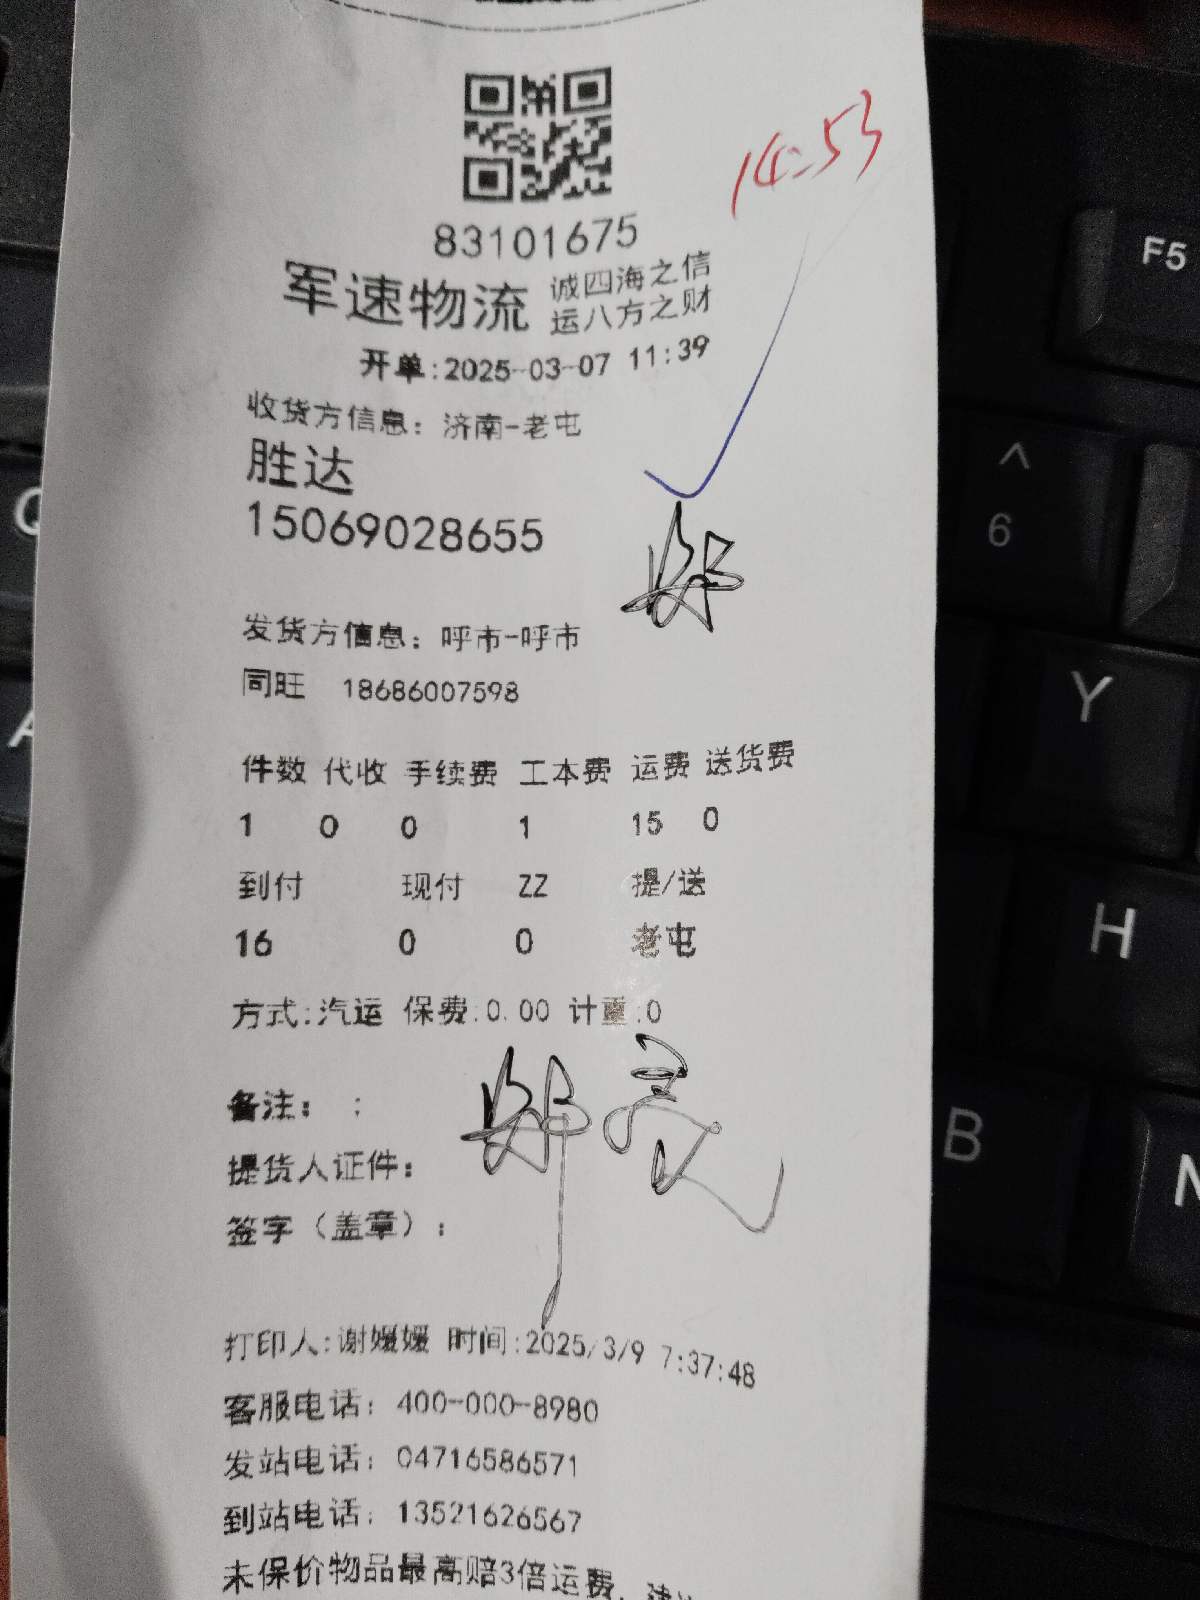 14:53
83101675
军速物流 诚四海之信
运八方之财
开单:2025-03-07 11:39
收货方信息: 济南-老屯
胜达
15069028655
发货方信息: 呼市-呼市
同旺 18686007598
件数 代收 手续费 工本费 运费 送货费
1 0 0 1 15 0
到付 现付 ZZ 提/送
16 0 0 老屯
方式:汽运 保费:0.00 计重:0
备注: :
提货人证件:
签字（盖章）:
打印人:谢媛媛 时间:2025/3/9 7:37:48
客服电话: 400-000-8980
发站电话: 04716586571
到站电话: 13521626567
未保价物品最高赔3倍运费,
F5
^
6
Q
Y
A
H
B
N